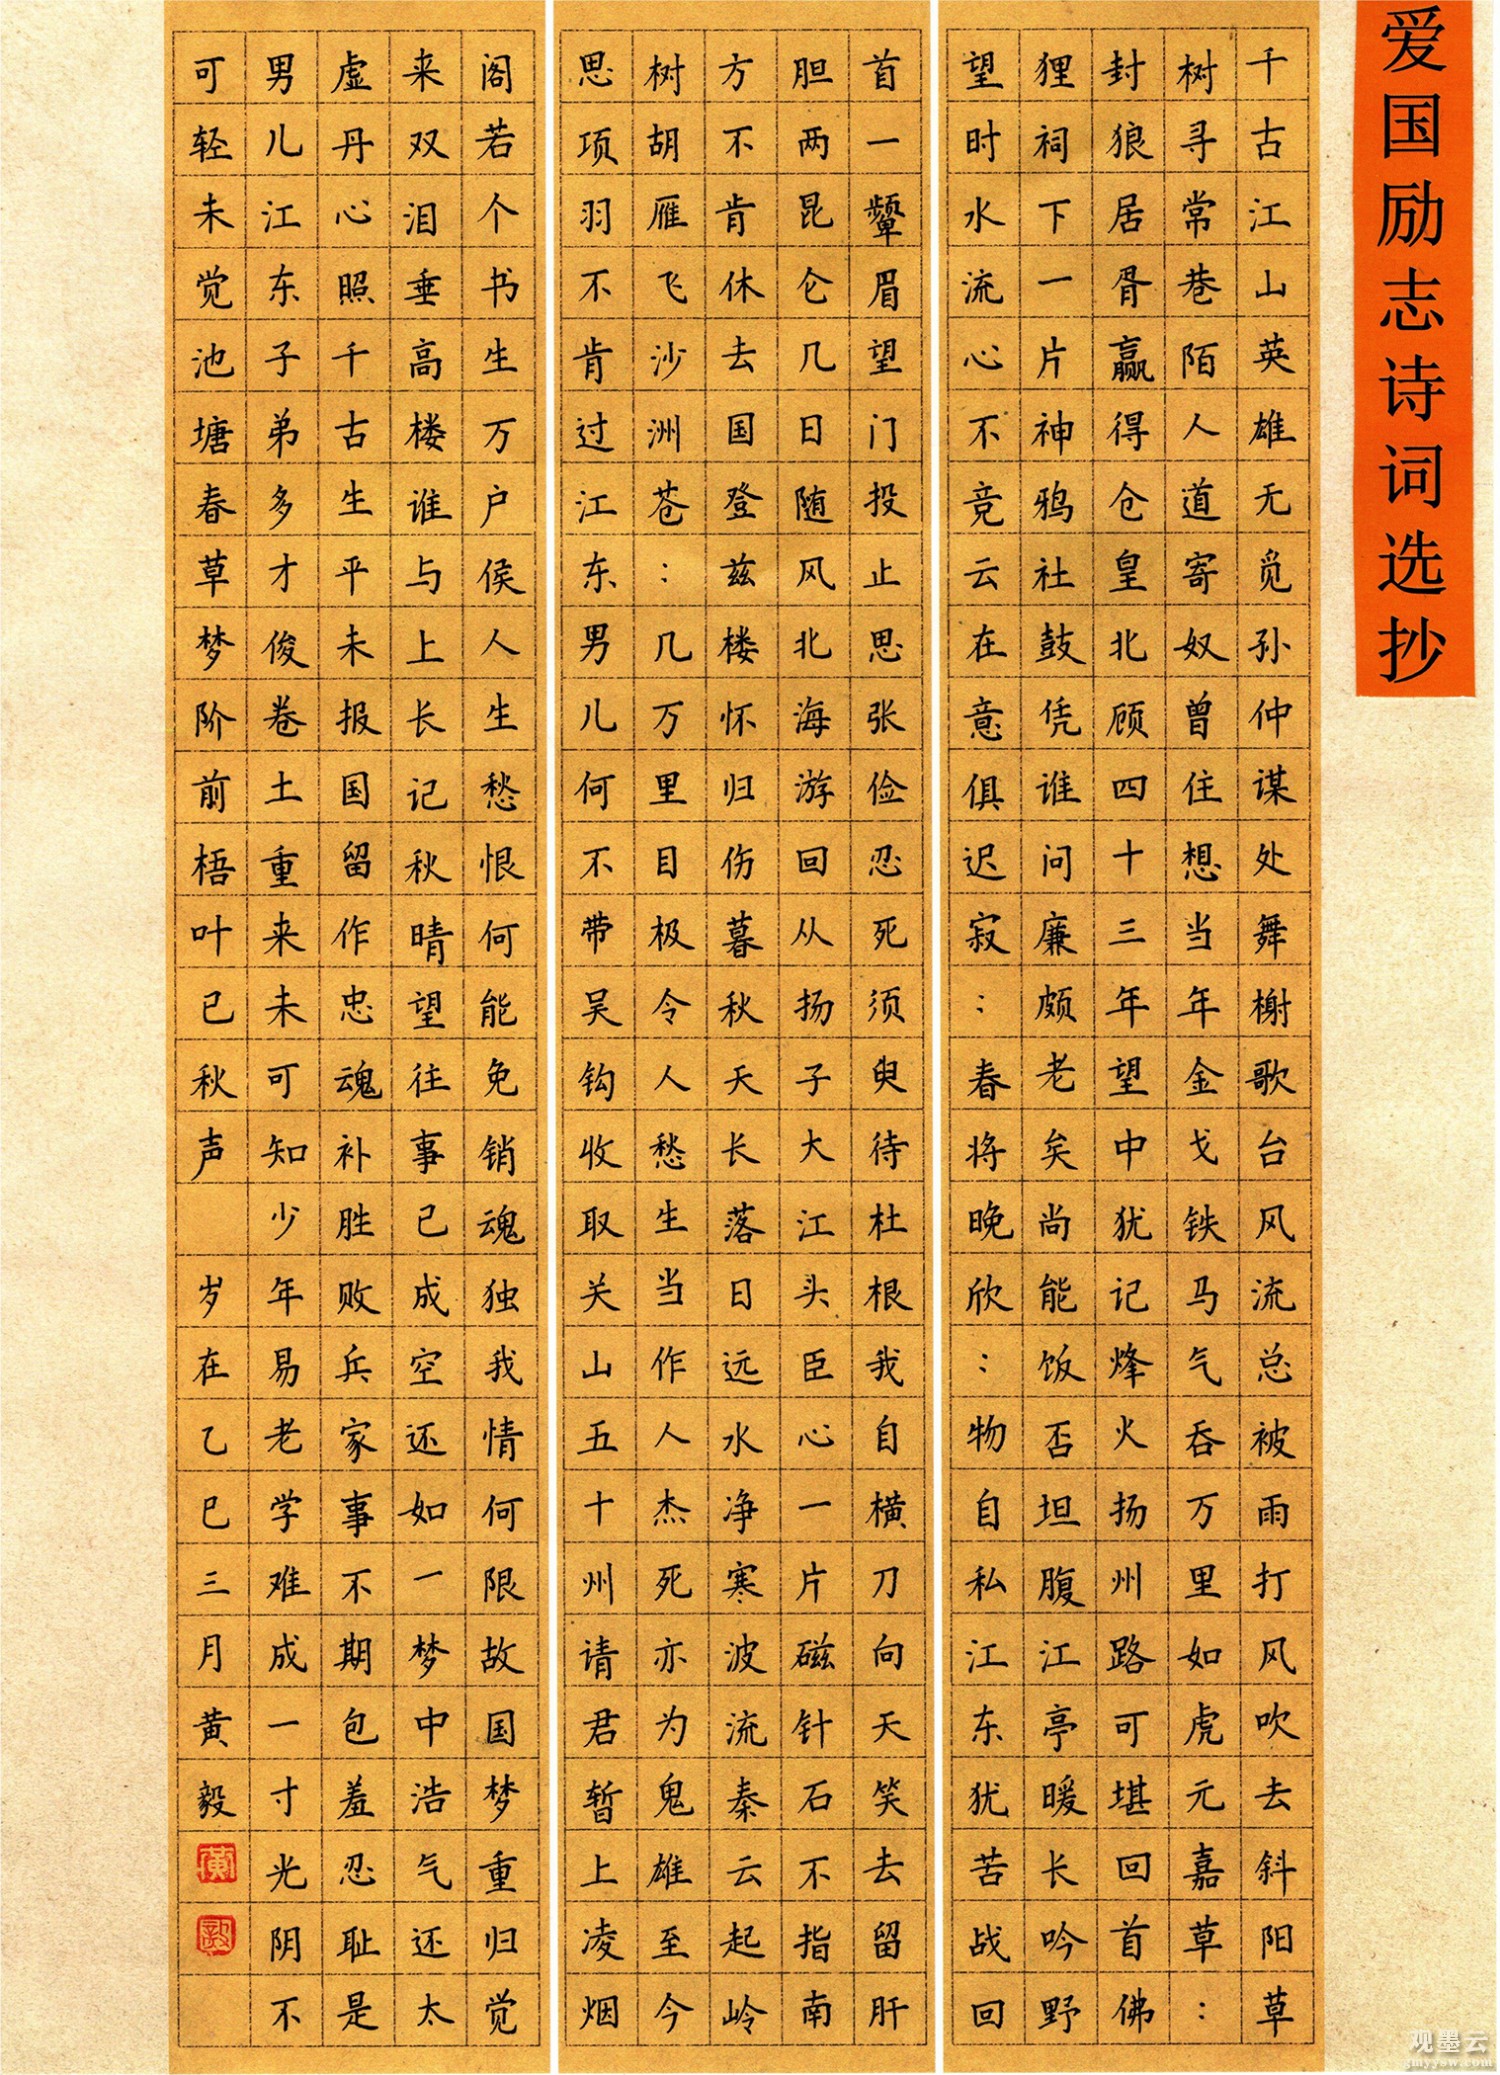 爱国励志诗词选抄
千古江山英雄无觅孙仲谋处舞榭歌台风流总被雨打风吹去斜阳草
树寻常巷陌人道寄奴曾住想当年金戈铁马气吞万里如虎元嘉草：
封狼居胥赢得仓皇北顾四十三年望中犹记烽火扬州路可堪回首佛
狸祠下一片神鸦社鼓凭谁问廉颇老矣尚能饭否坦腹江亭暖长吟野
望时水流心不竞云在意俱迟寂：春将晚欣：物自私江东犹苦战回
首一颦眉望门投止思张俭忍死须臾待杜根我自横刀向天笑去留肝
胆两昆仑几日随风北海游回从扬子大江头臣心一片磁针石不指南
方不肯休去国登兹楼怀归伤暮秋天长落日远水净寒波流秦云起岭
树胡雁飞沙洲苍：几万里目极令人愁生当作人杰死亦为鬼雄至今
思项羽不肯过江东男儿何不带吴钩收取关山五十州请君暂上凌烟
阁若个书生万户侯人生愁恨何能免销魂独我情何限故国梦重归觉
来双泪垂高楼谁与上长记秋晴望往事已成空还如一梦中浩气还太
虚丹心照千古生平未报国留作忠魂补胜败兵家事不期包羞忍耻是
男儿江东子弟多才俊卷土重来未可知少年易老学难成一寸光阴不
可轻未觉池塘春草梦阶前梧叶已秋声 岁在乙巳三月黄毅
黄
毅
观墨云
jmyysw.com